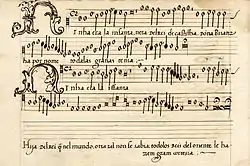 Niña era la infanta, nieta del rei de castilha. Dona Briatiz
ha por nome todalas graças tenia
Niña era la iffanta
Hija del rei q̃ nel mundo, otra tal non se sabia todolos reis del oriente le ha
zem gram cortezia